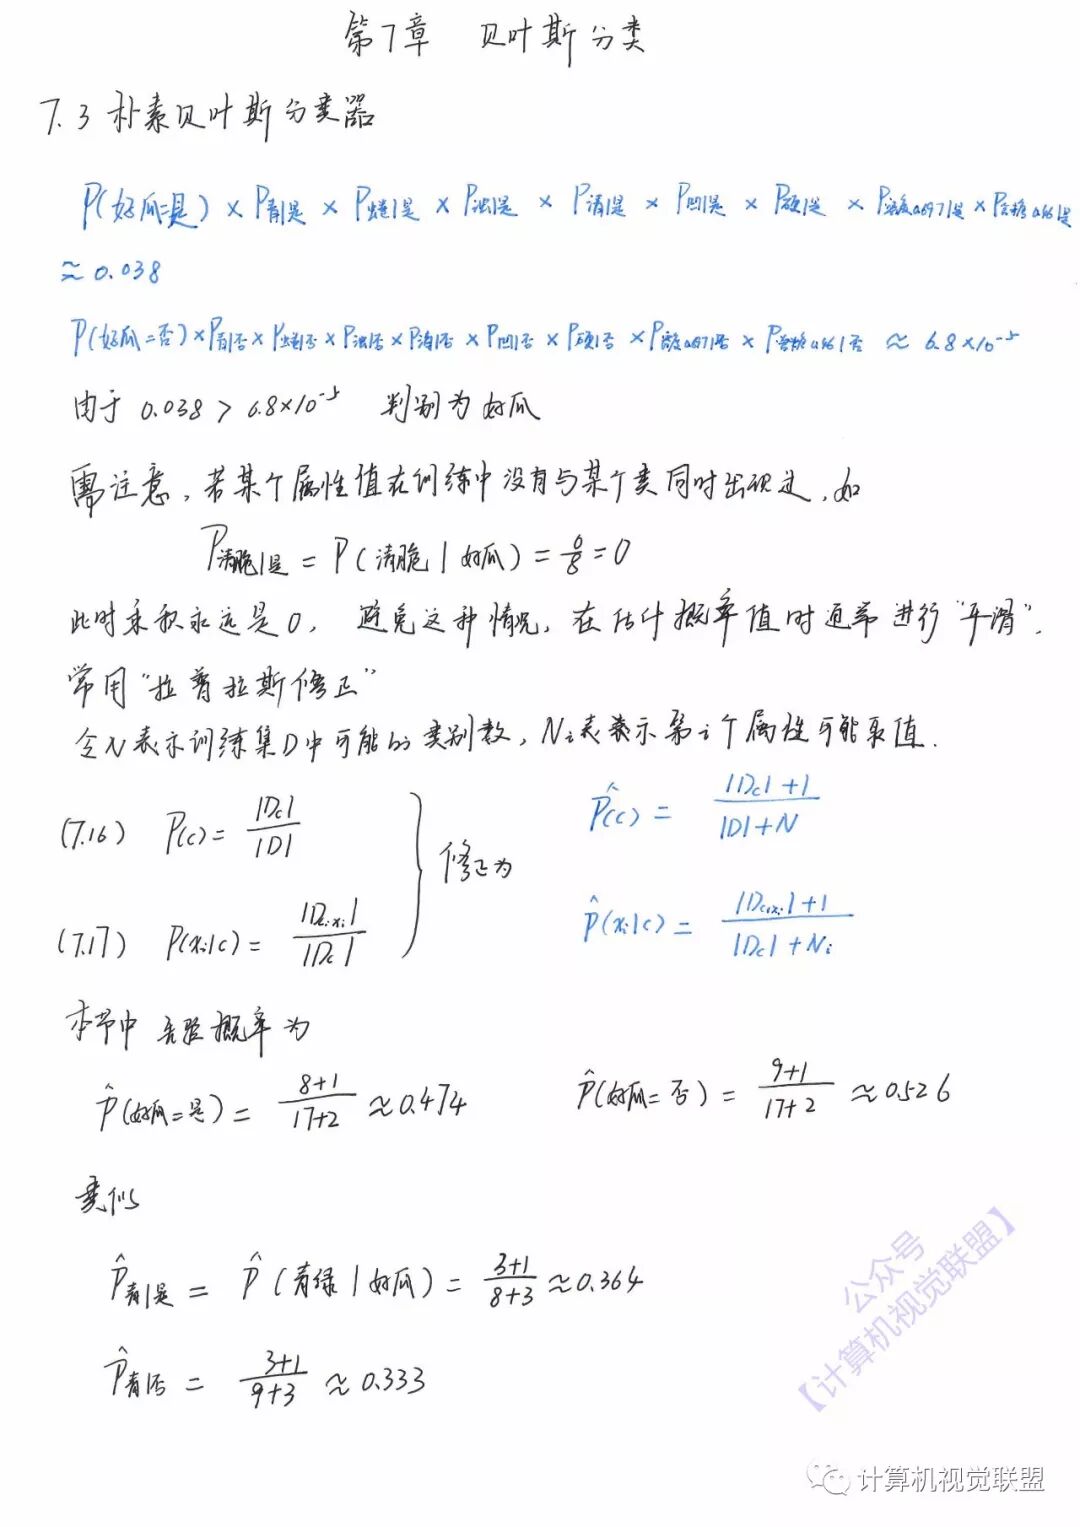 第7章 贝叶斯分类
7.3 朴素贝叶斯分类器
P(好瓜=是) × P青|是 × P蜷|是 × P浊|是 × P清|是 × P凹|是 × P硬|是 × P密度0.697|是 × P含糖0.46|是
≈ 0.038
P(好瓜=否) × P青|否 × P蜷|否 × P浊|否 × P清|否 × P凹|否 × P硬|否 × P密度0.697|否 × P含糖0.46|否 ≈ 6.8×10⁻⁵
由于 0.038 > 6.8×10⁻⁵ 判别为好瓜
需注意,若某个属性值在训练中没有与某个类同时出现过,如
P清脆|是 = P(清脆|好瓜) = 0/8 = 0
此时乘积永远是0, 避免这种情况,在估计概率值时通常进行“平滑”.
常用“拉普拉斯修正”
令N表示训练集D中可能的类别数,Nᵢ表示第i个属性可能取值.
(7.16) P(c) = |Dc| / |D|
修正为
P̂(c) = (|Dc|+1) / (|D|+N)
(7.17) P(xᵢ|c) = |Dc,xᵢ| / |Dc|
P̂(xᵢ|c) = (|Dc,xᵢ|+1) / (|Dc|+Nᵢ)
本节中 先验概率为
P̂(好瓜=是) = (8+1)/(17+2) ≈ 0.474 P̂(好瓜=否) = (9+1)/(17+2) ≈ 0.526
类似
P̂青|是 = P̂(青绿|好瓜) = (3+1)/(8+3) ≈ 0.364
P̂青|否 = (3+1)/(9+3) ≈ 0.333
公众号
【计算机视觉联盟】
计算机视觉联盟